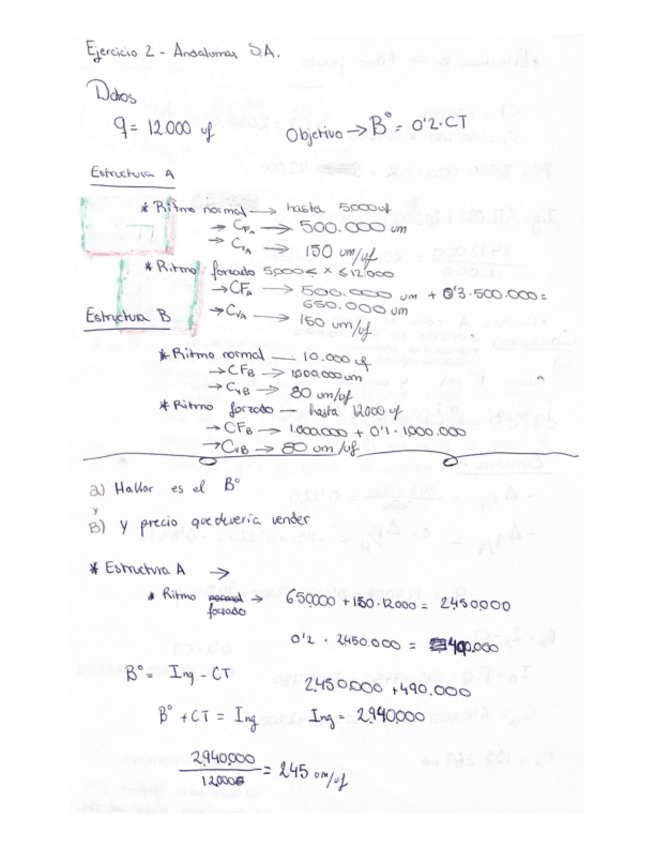 Ejercicio 2 - Andalumar S.A.
Datos
q = 12.000 uf Objetivo → B° = 0'2·CT
Estructura A
* Ritmo normal → hasta 5000 uf
→ CFA → 500.000 um
→ CVA → 150 um/uf
* Ritmo forzado 5000 ≤ x ≤ 12.000
→ CFA → 500.000 um + 0'3·500.000 =
650.000 um
→ CVA → 150 um/uf
Estructura B
* Ritmo normal — 10.000 uf
→ CFB → 1.000.000 um
→ CVB → 80 um/uf
* Ritmo forzado — hasta 12000 uf
→ CFB → 1.000.000 + 0'1·1.000.000
→ CVB → 80 um/uf
a) Hallar es el B°
y
B) y precio que devería vender
* Estructura A →
* Ritmo normal → 650.000 + 150·12.000 = 2450.000
forzado
0'2 · 2450.000 = 490.000
B° = Ing - CT
2.450.000 + 490.000
B° + CT = Ing Ing = 2.940.000
2.940.000
12.000 = 245 um/uf